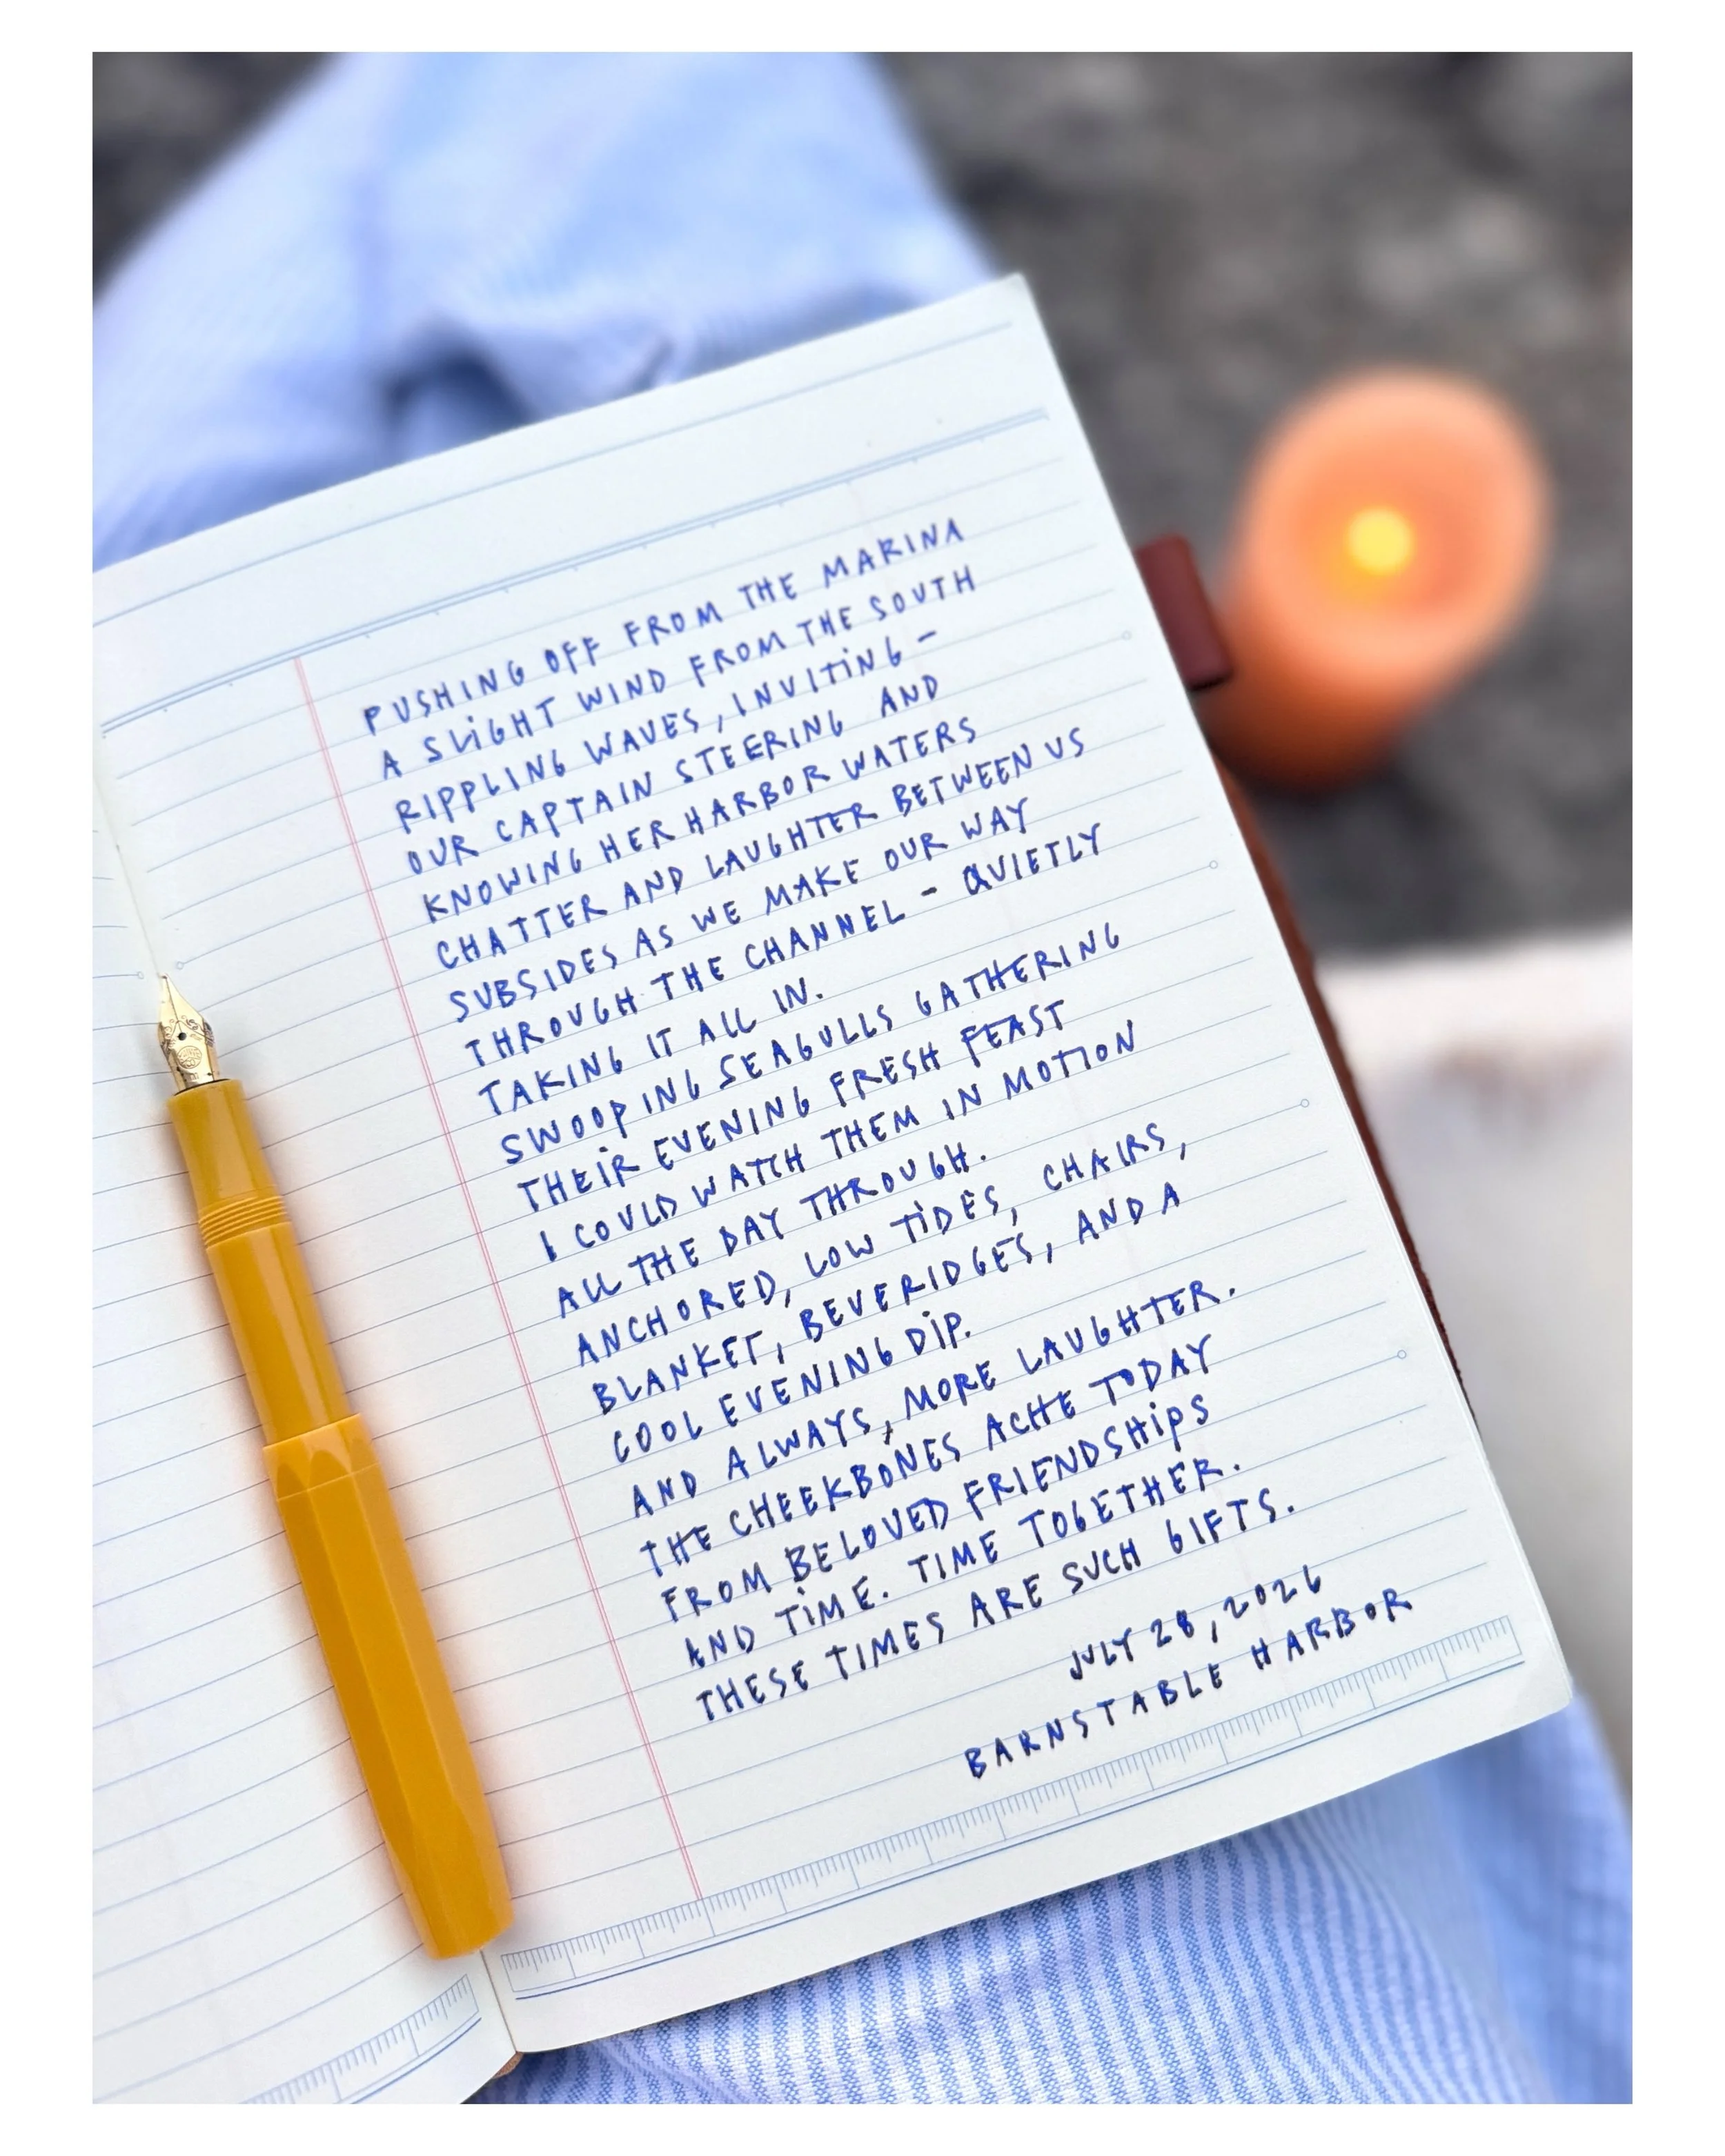 PUSHING OFF FROM THE MARINA
A SLIGHT WIND FROM THE SOUTH
RIPPLING WAVES, INVITING -
OUR CAPTAIN STEERING AND
KNOWING HER HARBOR WATERS
CHATTER AND LAUGHTER BETWEEN US
SUBSIDES AS WE MAKE OUR WAY
THROUGH THE CHANNEL - QUIETLY
TAKING IT ALL IN.
SWOOPING SEAGULLS GATHERING
THEIR EVENING FRESH FEAST
I COULD WATCH THEM IN MOTION
ALL THE DAY THROUGH.
ANCHORED, LOW TIDES, CHAIRS,
BLANKET, BEVERIDGES, AND A
COOL EVENING DIP.
AND ALWAYS, MORE LAUGHTER.
THE CHEEKBONES ACHE TODAY
FROM BELOVED FRIENDSHIPS
AND TIME. TIME TOGETHER.
THESE TIMES ARE SUCH GIFTS.
JULY 28, 2026
BARNSTABLE HARBOR